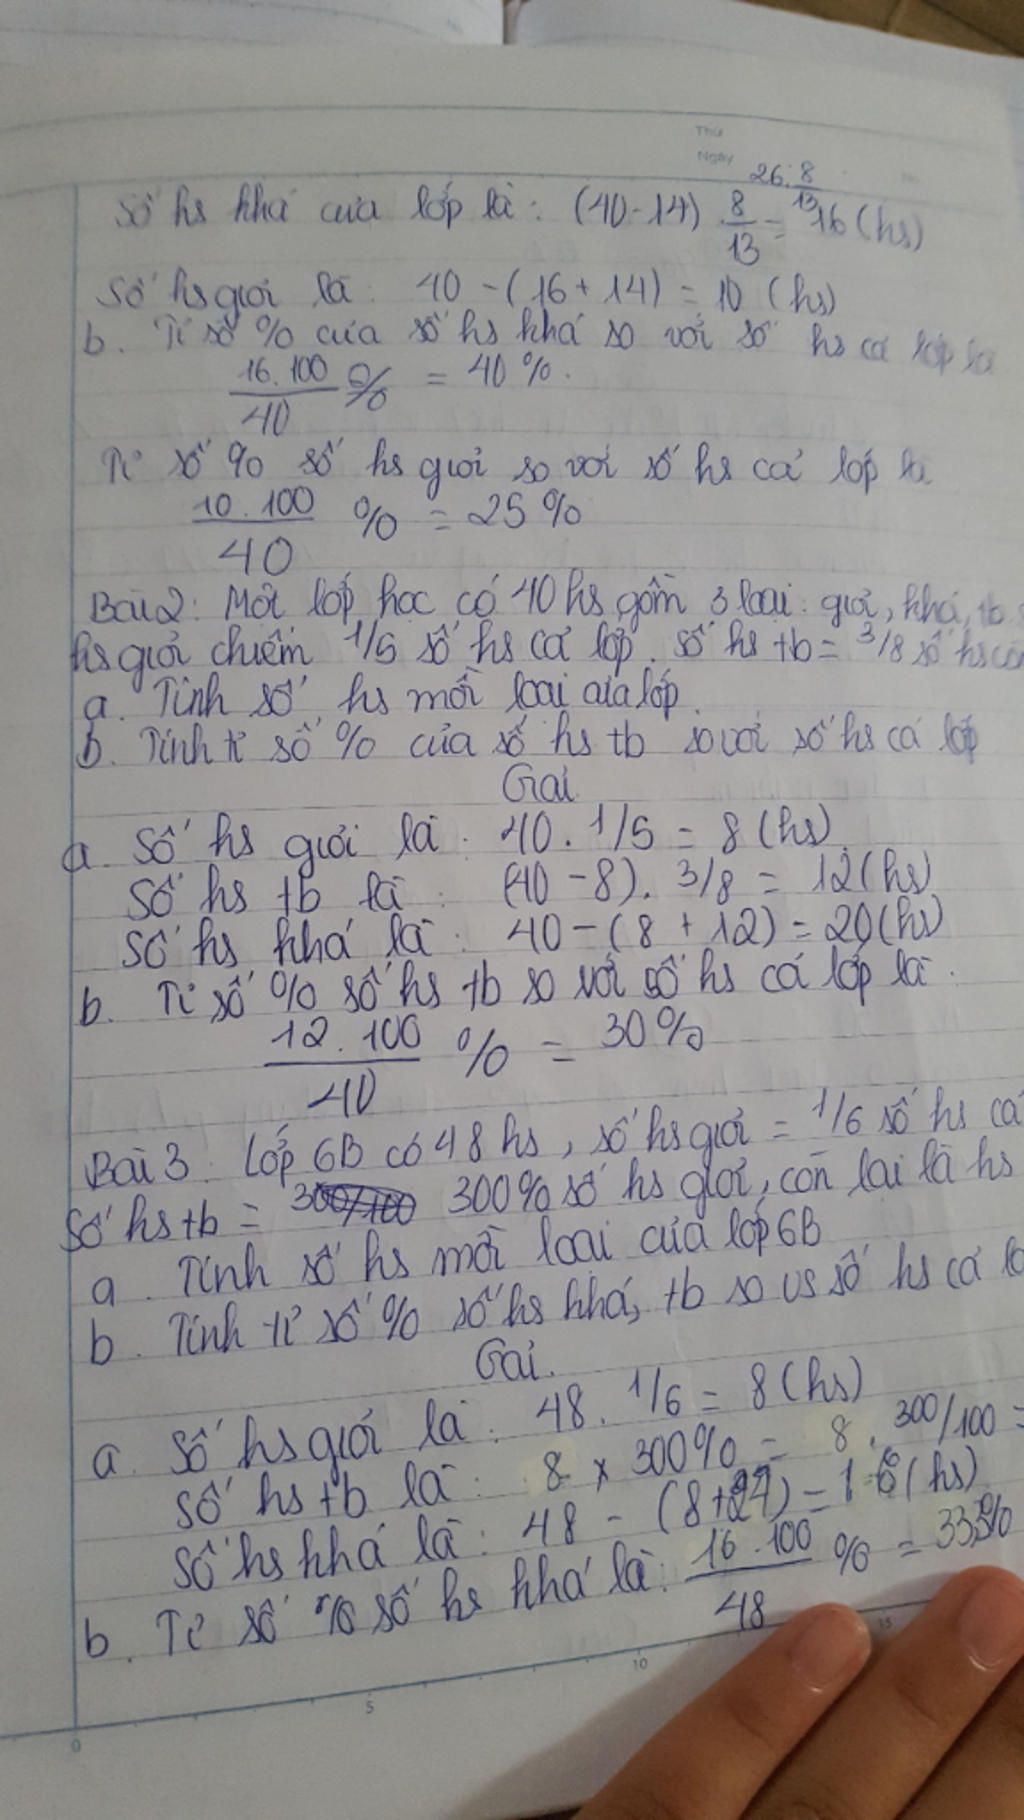 Thứ
Ngày
26.8
13
Số hs khá của lớp là: (40-14) 8/13 = 16 (hs)
Số hs giỏi là: 40 - (16 + 14) = 10 (hs)
b. Tỉ số % của số hs khá so với số hs cả lớp là
16.100/40 % = 40%.
Tỉ số % số hs giỏi so với số hs cả lớp là
10.100/40 % = 25%
Bài 2: Một lớp học có 40 hs gồm 3 loại: giỏi, khá, tb.
hs giỏi chiếm 1/5 số hs cả lớp. số hs tb = 3/8 số hs còn
a. Tính số hs mỗi loại của lớp.
b. Tính tỉ số % của số hs tb so với số hs cả lớp
Giải
a. Số hs giỏi là: 40. 1/5 = 8 (hs)
Số hs tb là: (40 - 8). 3/8 = 12 (hs)
Số hs khá là: 40 - (8 + 12) = 20 (hs)
b. Tỉ số % số hs tb so với số hs cả lớp là:
12.100/40 % = 30%
Bài 3: Lớp 6B có 48 hs, số hs giỏi = 1/6 số hs cả
Số hs tb = 300% số hs giỏi, còn lại là hs
a. Tính số hs mỗi loại của lớp 6B
b. Tính tỉ số % số hs khá, tb so vs số hs cả lớ
Gải.
a. Số hs giỏi là: 48. 1/6 = 8 (hs)
Số hs tb là: 8 x 300% = 8. 300/100 =
Số hs khá là: 48 - (8+24) = 16 (hs)
b. Tỉ số % số hs khá là: 16.100/48 % = 33,3%
0 5 10 15